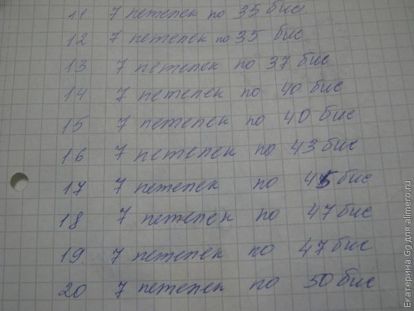 11 7 петелек по 35 бис
12 7 петелек по 35 бис
13 7 петелек по 37 бис
14 7 петелек по 40 бис
15 7 петелек по 40 бис
16 7 петелек по 43 бис
17 7 петелек по 45 бис
18 7 петелек по 47 бис
19 7 петелек по 47 бис
20 7 петелек по 50 бис
Екатерина Gg для alimero.ru